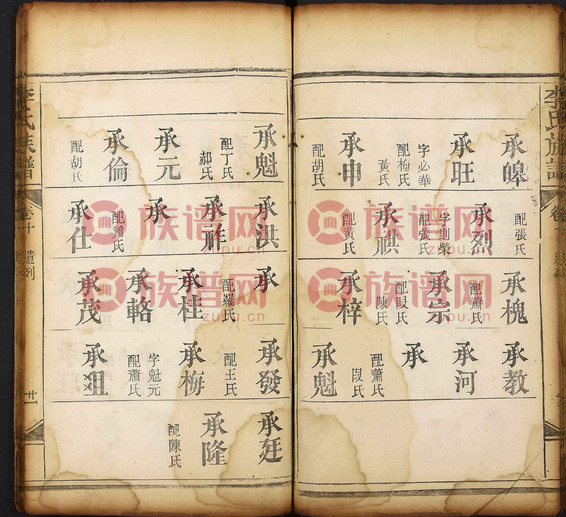 李氏族譜
卷十
承皞
承旺
字必華
配梅氏
黃氏
承申
配胡氏
配張氏
承烈
字則榮
配張氏
承祺
配黃氏
承槐
配蕭氏
承宗
配段氏
陳氏
承梓
承教
承河
承
配蕭氏
段氏
承魁
承魁
配丁氏
郝氏
承元
承倫
配胡氏
承洪
承祥
承
承仕
承
配羅氏
承桂
承輅
承茂
承發
配王氏
承梅
字魁元
配蕭氏
承廷
承隆
配陳氏
李氏族譜
卷十
遺列
廿
族谱网
zupu.cn
族谱网
zupu.cn
族谱网
zupu.cn
族谱网
zupu.cn